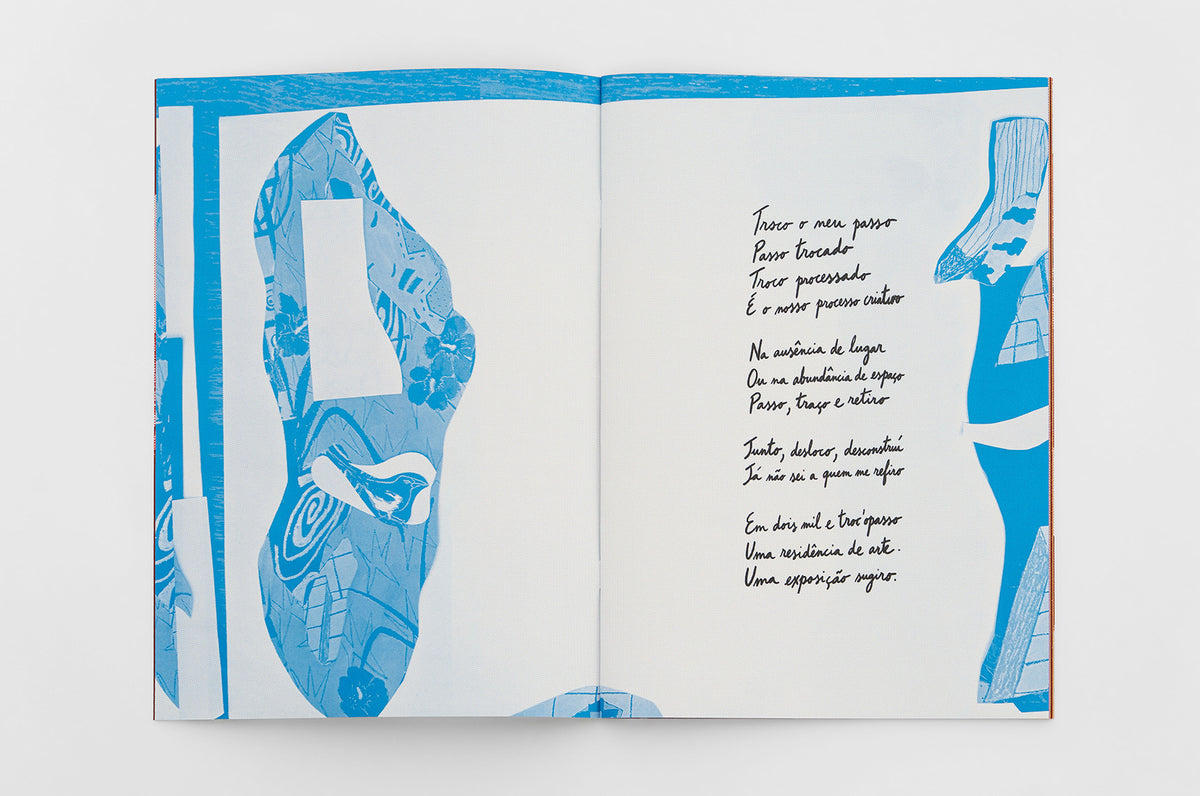 Troco o meu passo
Passo trocado
Troco processado
É o nosso processo criativo
Na ausência de lugar
Ou na abundância de espaço
Passo, traço e retiro
Junto, desloco, desconstruí
Já não sei a quem me refiro
Em dois mil e troc'opasso
Uma residência de arte.
Uma exposição sugiro.